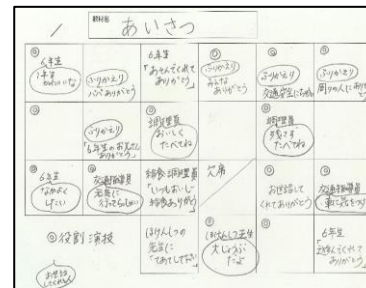 教材名 あいさつ
6年生
1年生
かわいいな
ふりかえり
パパありがとう
6年生
「あそんでくれて
ありがとう」
ふりかえり
みんな
ありがとう
ふりかえり
ふりかえり
ふりかえり
「6年生のお兄さん
ありがとう」
調理員
おいしく
たべてね
調理員
残さず
たべてね
6年生
なかよく
したい
交通指導員
元気に
行ってらっしゃい
給食調理員
「いつもおいしい
給食ありがとう」
欠席
お世話して
くれてありがとう
交通指導員
車に気をつけ
◎役割演技
ほけんしつの
先生に
「てあてしてくれて
ほけんしつの先生
大じょうぶ
だよ
6年生
ありがとう